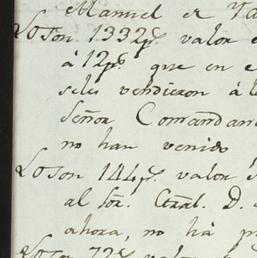 Manuel de Va
Yoson 1332p.s valor d
á 12p.s que en e
seles vendieron á l
Señor Comandan
no han venido
Yoson 144p.s valor d
al Sor. Gral. D.
ahora, no há p